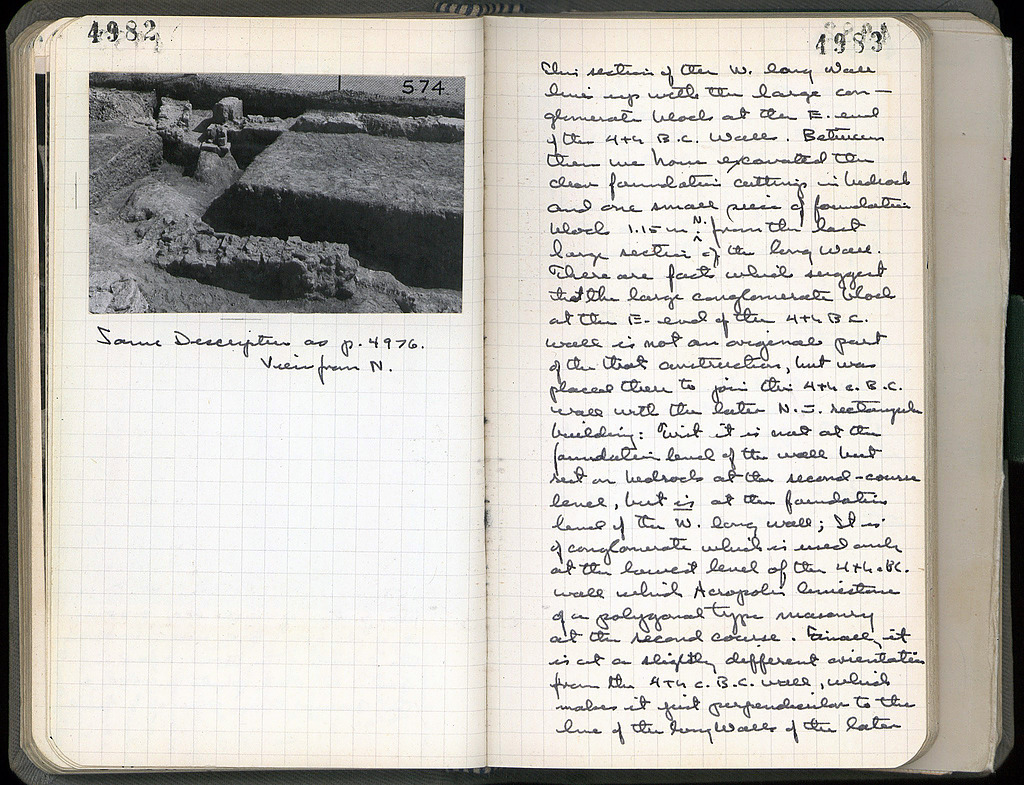 4982
574
Same Description as p. 4976.
View from N.
4983
This section of the W. long wall
lines up with the large con-
glomerate block at the E. end
of the 4th B.C. Wall. Between
them we have excavated the
clear foundation cuttings in bedrock
and one small piece of foundation
block 1.15 m N. from the last
large section of the long wall.
There are facts which suggest
that the large conglomerate block
at the E. end of the 4th B.C.
wall is not an original part
of the that construction, but was
placed there to join this 4th c. B.C.
wall with the later N.-S. rectangular
building: First it is not at the
foundation level of the wall but
rest on bedrock at the second-course
level, but is at the foundation
level of the W. long wall; It is
of conglomerate which is used only
at the lowest level of the 4th c. BC.
wall which Acropolis limestone
of a polygonal type masonry
at the second course. Finally, it
is at a slightly different orientation
from the 4th c. B.C. wall, which
makes it just perpendicular to the
line of the long Walls of the later